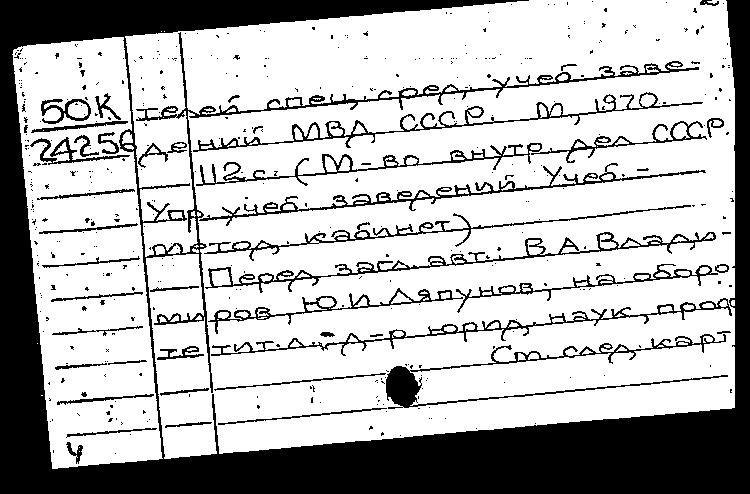 50.К телей спец. сред. учеб. заве-
24256 дений МВД СССР. М., 1970.
112 с. (М-во внутр. дел СССР.
Упр. учеб. заведений. Учеб.-
метод. кабинет).
Перед загл. авт.: В.А. Влади-
миров, Ю.И. Ляпунов; на оборо-
те тит. л. - д-р юрид. наук, проф
См. след. карт.
4